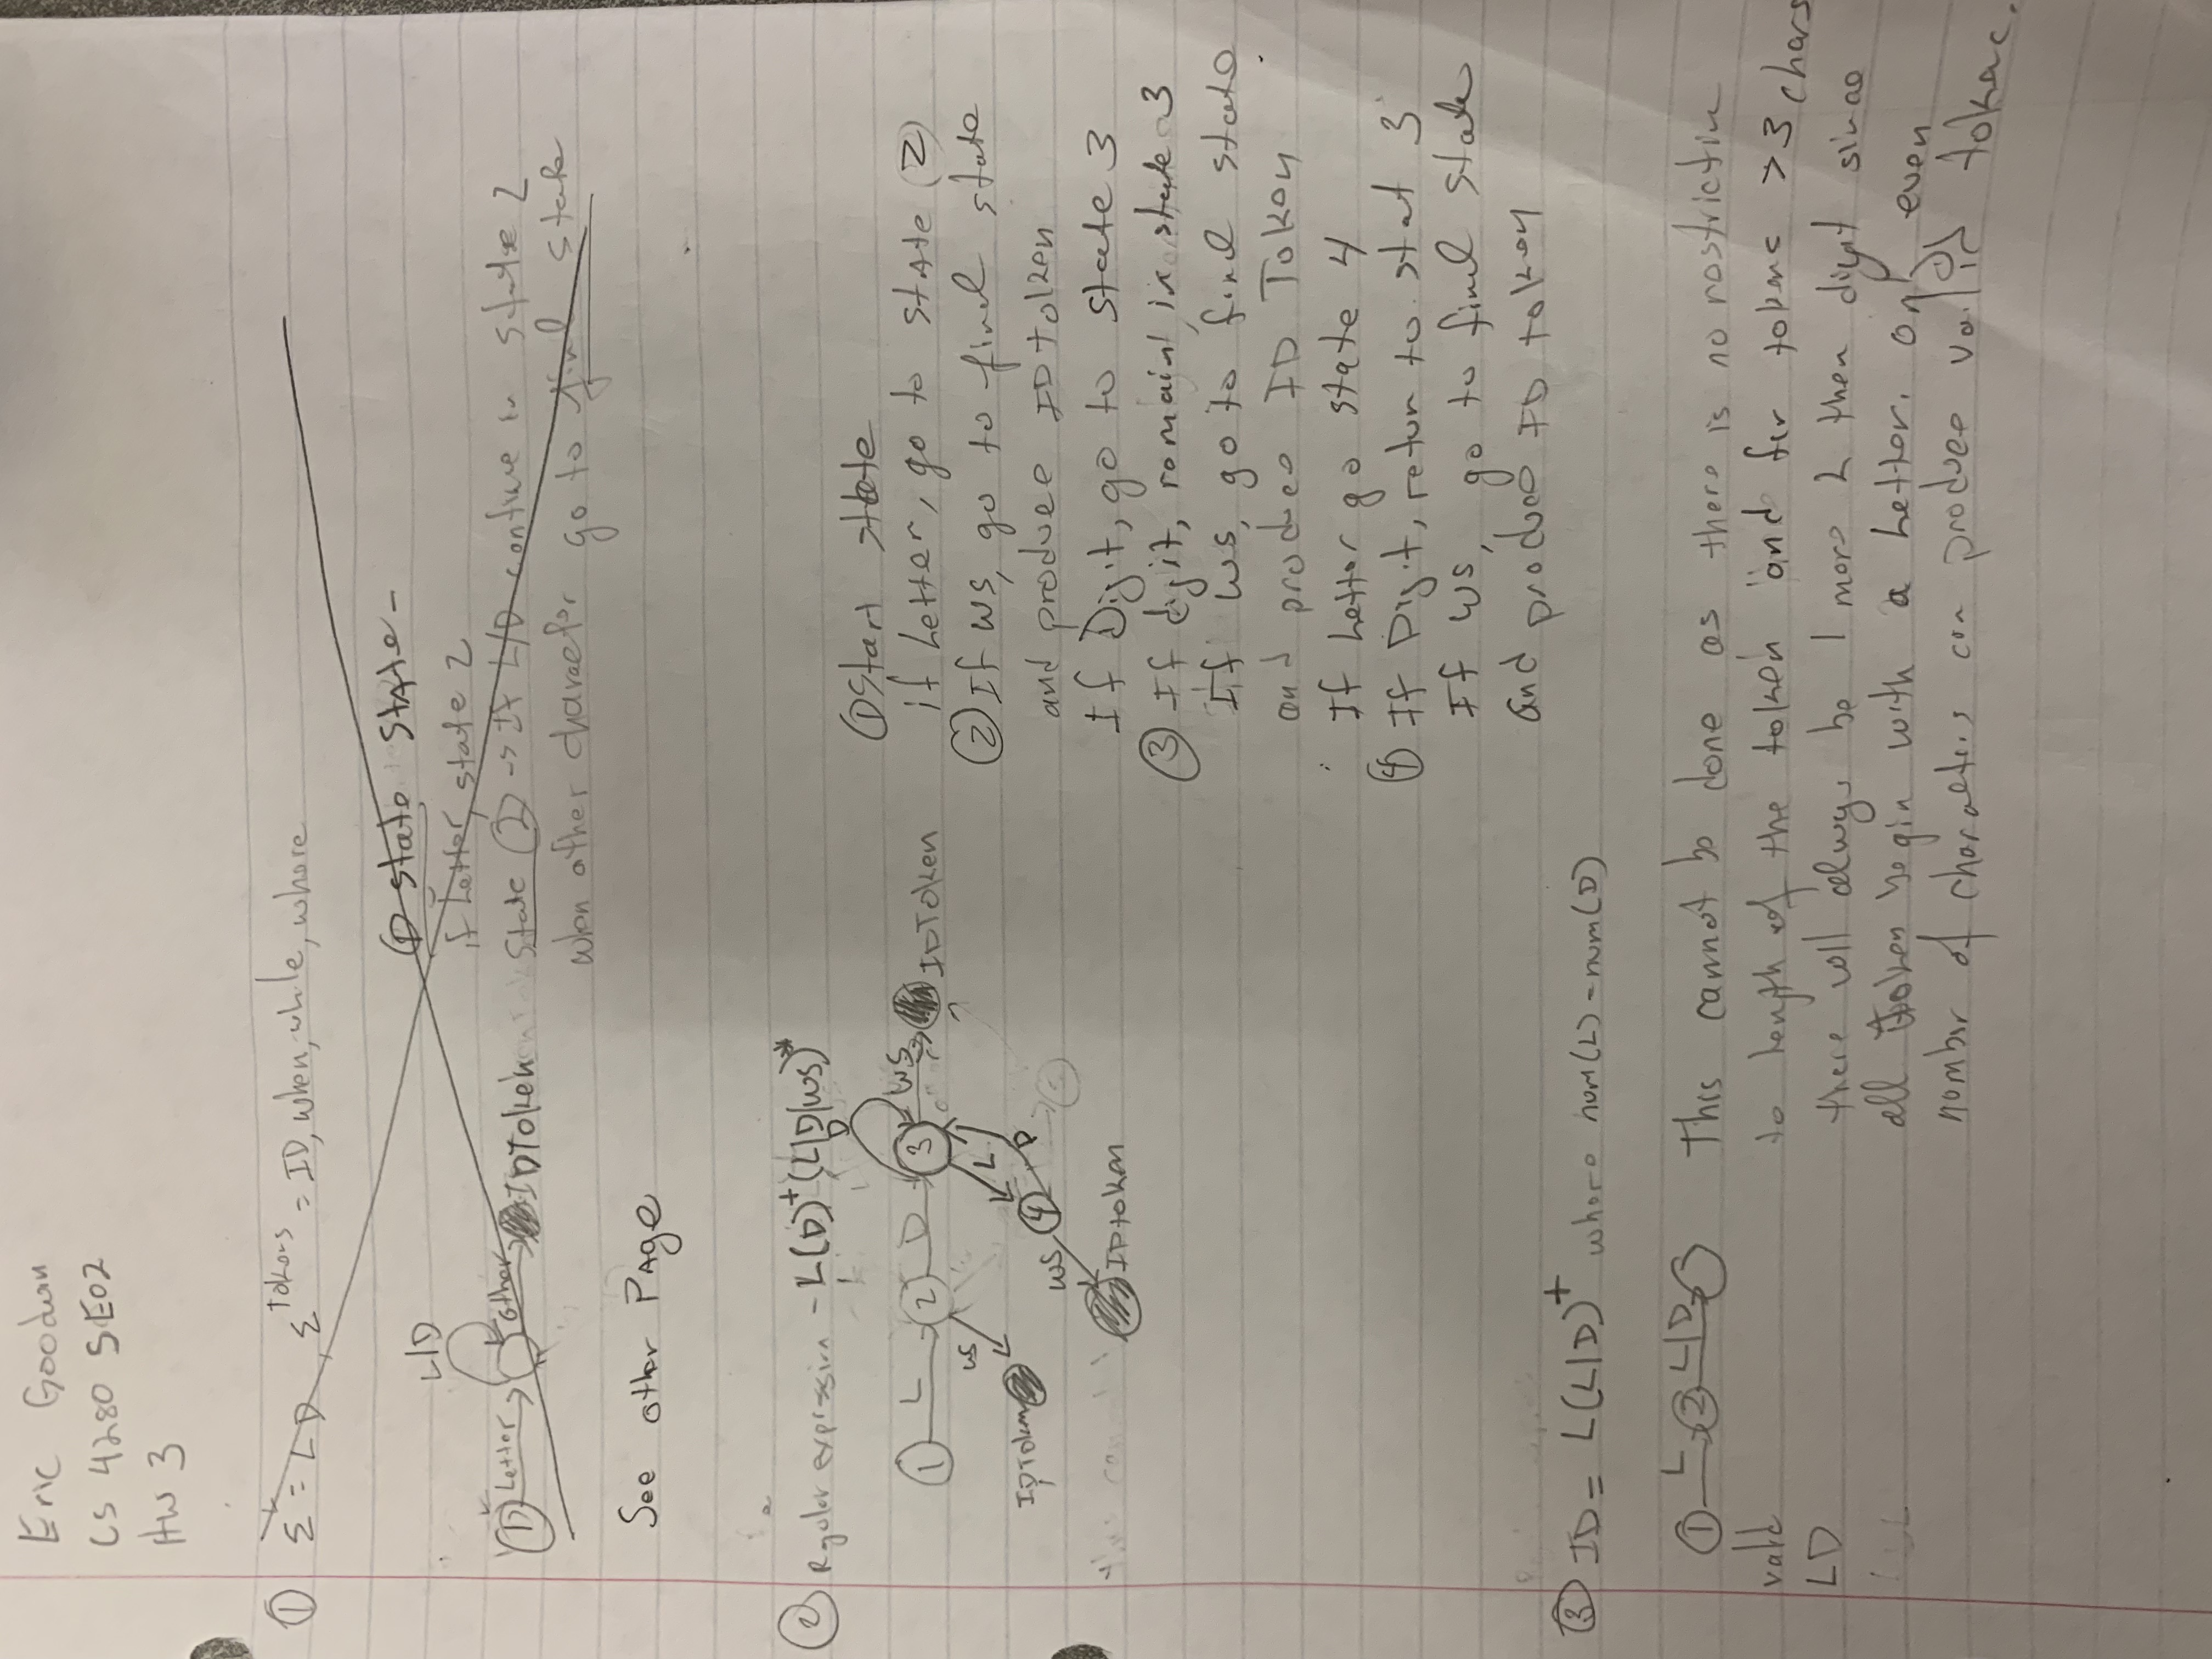 Eric Goodwin
CS 4280 SE02
HW 3
① Σ = LD, Σ Tokens = ID, when, while, where
① state State -
If Letter, state 2
State ② -> If L/D continue in state 2
when other character go to final state
L|D
① Letter other IDToken
See other PAge
② Regular expression - L(D)⁺(L|D|WS)*
D
① L ② D ③ WS IDToken
WS L D
IDToken WS ④
IDtoken
① Start state
if Letter, go to stAte ②
② If WS, go to final state
and produce IDtolken
If Digit, go to state 3
③ If digit, remain in state 3
If WS, go to final state
and produce ID Token
If Letter go state 4
④ If Digit, return to stat 3
If WS, go to final state
and produce ID token
③ ID = L(L|D)⁺ where num(L) = num(D)
① L ② L|D
valid
LD
This cannot be done as there is no restrictin
to length of the token and for tokens > 3 chars
there will always be 1 more L then digit sinae
all token begin with a letter. only even
number of charaters can produce valid tokene.